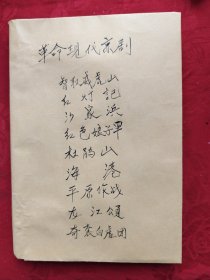 革命现代京剧
智取威虎山
红灯记
沙家浜
红色娘子军
杜鹃山
海港
平原作战
龙江颂
奇袭白虎团